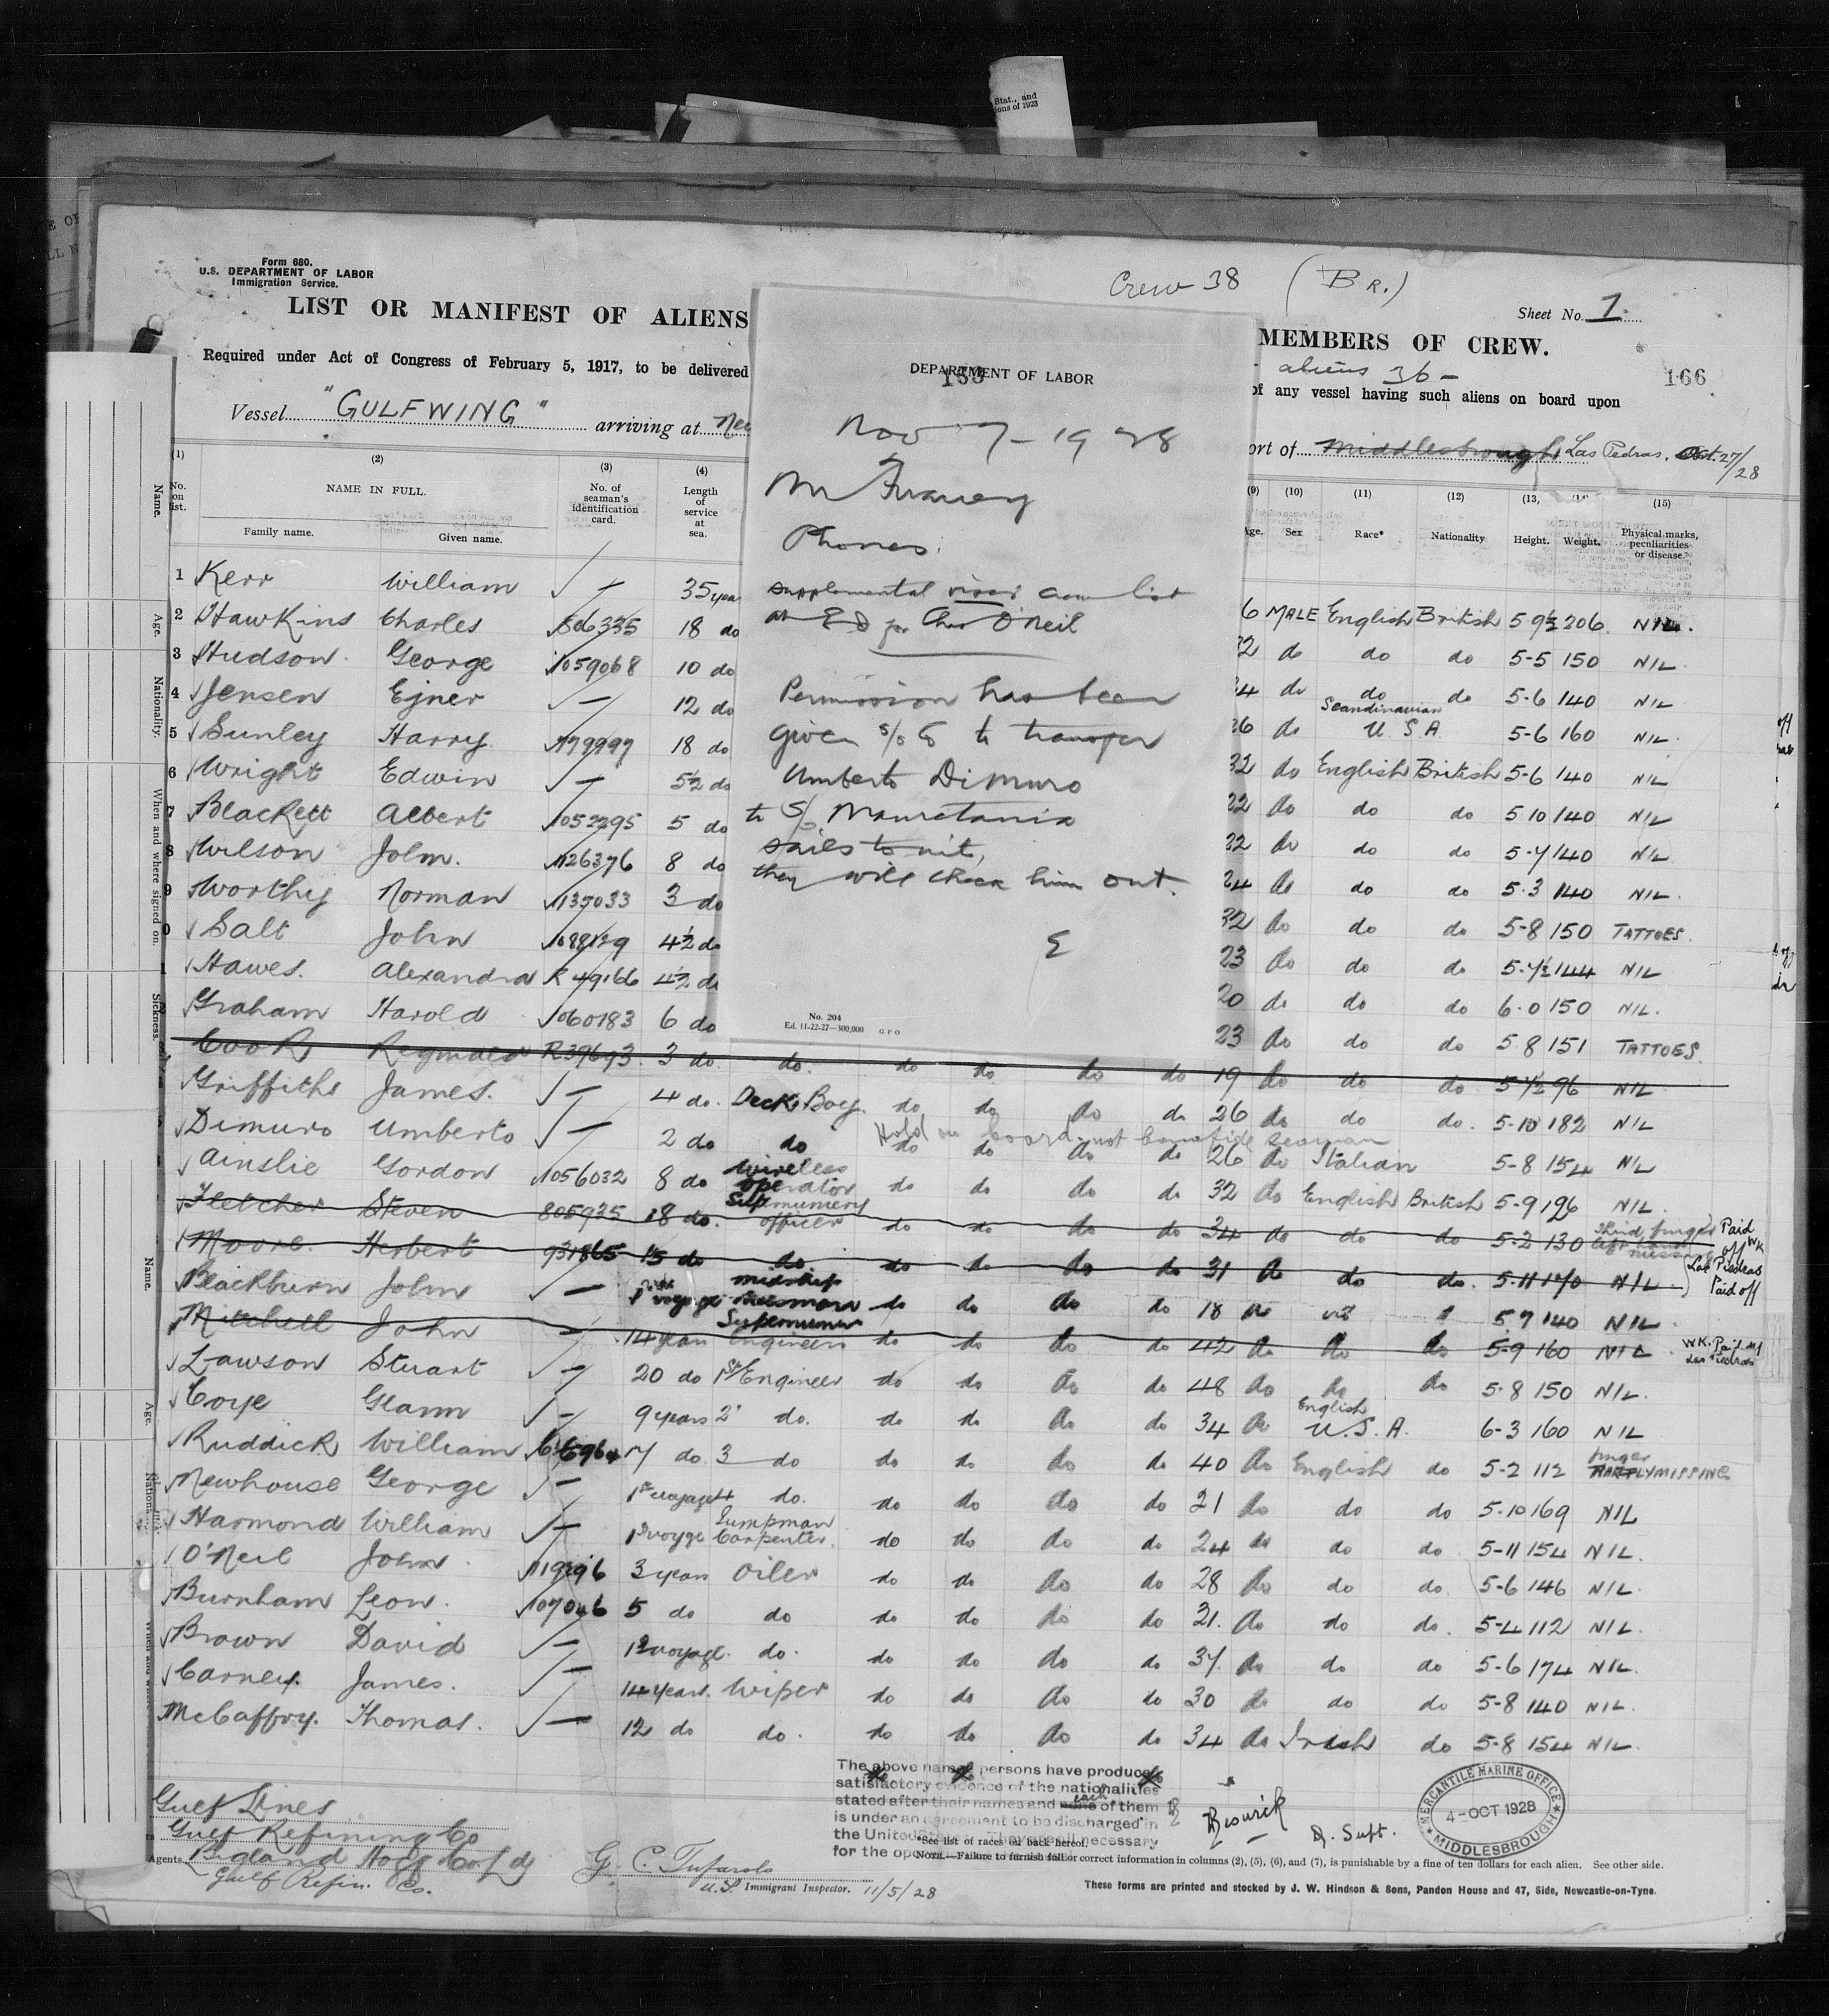 Stat., and
ions of 1923
Form 680.
U.S. DEPARTMENT OF LABOR
Immigration Service.
Crew 38 (BR.)
Sheet No. 1
LIST OR MANIFEST OF ALIENS
MEMBERS OF CREW.
aliens 36 -
166
Required under Act of Congress of February 5, 1917, to be delivered
of any vessel having such aliens on board upon
Vessel "GULFWING" arriving at New
ort of Middlesbrough Las Pedras. Oct. 27/28
(1) (2) (3) (4)
(9) (10) (11) (12) (13, (15)
No. on list. NAME IN FULL. No. of seaman's identification card. Length of service at sea.
Family name. Given name.
Age. Sex Race* Nationality Height. Weight. Physical marks, peculiarities or disease.
DEPARTMENT OF LABOR
153
Nov 7 - 1928
Phones.
supplemental crew list
O'Neil
Permission has been
given to transfer
Umberto Dimuro
to S/S Mauretania
sails to-nit,
they will check him out.
No. 204
Ed. 11-22-27—300,000 GPO
1 Kerr William — 35 yea
2 Hawkins Charles 806335 18 do
6 MALE English British 5-9½ 206. NIL.
3 Hudson George 1059068 10 do
32 do do do 5-5 150 NIL
4 Jensen Ejner — 12 do
34 do do do 5-6 140 NIL
5 Sunley Harry 18 do
26 do Scandinavian U.S.A. 5-6 160 NIL
6 Wright Edwin — 5½ do
32 do English British 5-6 140 NIL
7 Blackett Albert 1052295 5 do
22 do do do 5 10 140 NIL
8 Wilson John. 1126376 8 do
22 do do do 5-7 140 NIL
9 Worthy Norman 1135033 3 do
24 do do do 5-3 140 NIL.
0 Salt John 4½ do
32 do do do 5-8 150 TATTOES.
1 Hawes. Alexandra R 49166 4½ do
23 do do do 5-7½ 144 NIL
Graham Harold 1060183 6 do
20 do do do 6-0 150 NIL.
23 do do do 5 8 151 TATTOES
Cook Reginald R39693 3 do do. do do do do 19 do do do 5 7½ 96 NIL
Griffiths James. — 4 do. Deck Boy. do do do do 26 do do do. 5-10 182 NIL
Hold on board not bonafide seaman
Dimuro Umberto — 2 do do do do do do 26 do Italian 5-8 154 NIL
Ainslie Gordon 1056032 8 do Wireless operator do do do do 32 do English British 5-9 196 NIL.
Fletcher Steven 805935 18 do. Supernumery officer do do do do 34 do do do 5-2 130 third finger left hand missing Paid off
Moore. Herbert 931865 15 do do do do do do 31 do do do. 5-11 170 NIL Las Piedras Paid off
Blackburn John — 1st voyage midship messman do do do do 18 do 5 7 140 NIL
Mitchell John — 14 years Engineer do do do do 42 do do do 5-9 160 NIL WK. Paid off Las Piedras
Lawson Stuart — 20 do 1st Engineer do do do do 48 do do do 5-8 150 NIL.
Coye Glann — 9 years 2' do. do do do do 34 do English U.S.A. 6-3 160 NIL
Ruddick William 7 do 3 do do do do do 40 do English do 5-2 112 finger PARTLY MISSING
Newhouse George — 1st voyage 4 do. do do do do 21 do do do 5-10 169 NIL
Harmond William — 1st voyge Pumpman Carpenter. do do do do 24 do do do 5-11 154 NIL.
O'Neil John. 3 years Oiler do do do do 28 do do do 5-6 146 NIL.
Burnham Leon. 5 do do do do do do 31. do do do. 5-4 112 NIL.
Brown David — 1st voyage. do. do do do do 37. do do do 5-6 174 NIL.
Carney. James. — 14 years. Wiper do do do do 30 do do do 5-8 140 NIL.
McCaffry. Thomas. — 12 do do. do do do do 34 do Irish do 5-8 154 NIL.
The above named persons have produced
satisfactory evidence of the nationalities
stated after their names and each of them
is under an agreement to be discharged in
the United
necessary
for the
*See list of races on back hereof.
NOTE.—Failure to furnish full or correct information in columns (2), (5), (6), and (7), is punishable by a fine of ten dollars for each alien. See other side.
D. Supt.
MERCANTILE MARINE OFFICE
4-OCT 1928
MIDDLESBROUGH
Gulf Lines
Gulf Refining Co
Agents
Gulf Refin. Co.
U.S. Immigrant Inspector. 11/5/28
These forms are printed and stocked by J. W. Hindson & Sons, Pandon House and 47, Side, Newcastle-on-Tyne.
Name.
Age.
Nationality.
When and where signed on.
Sickness.
Name.
Age.